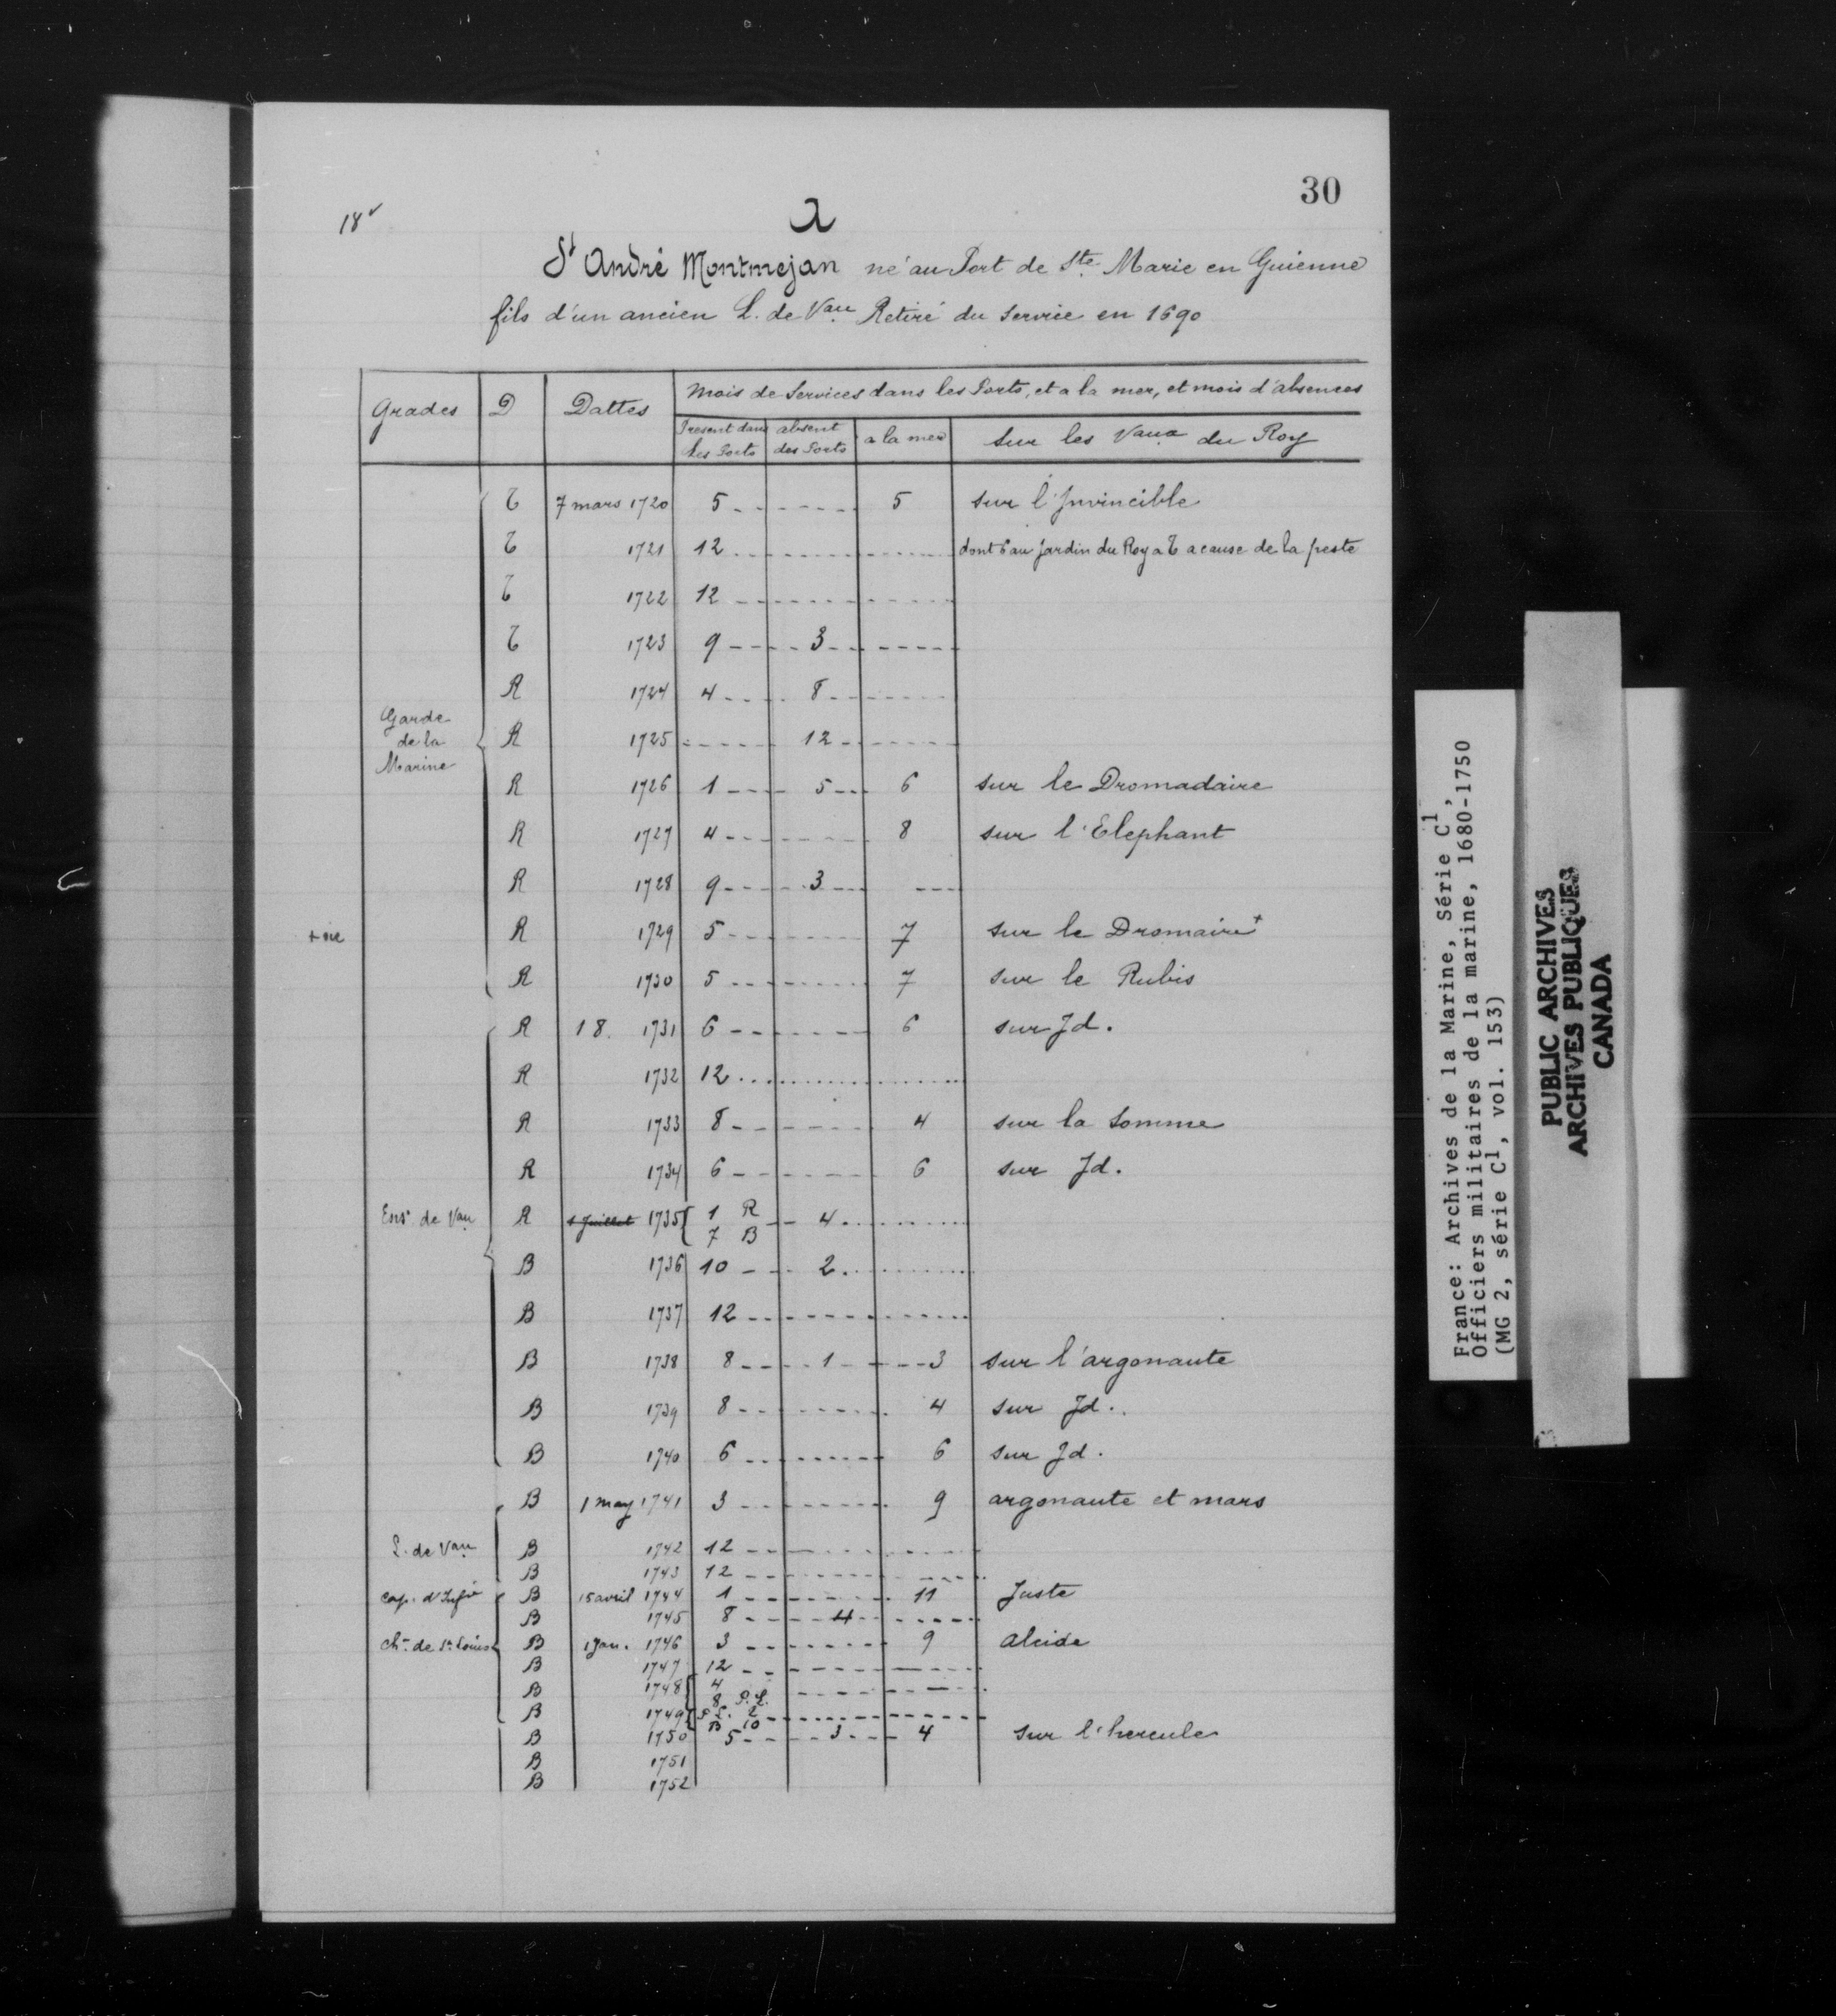 30
18v
St André Montmejan né au Port de Ste Marie en Guienne
fils d'un ancien L. de Vau Retiré du service en 1690
Grades D Dattes Mois de Services dans les Ports, et a la mer, et mois d'absences
Present dans les Ports absent des Ports a la mer sur les Vaux du Roy
Garde de la Marine
T 7 mars 1720 5 5 sur l'Invincible
T 1721 12 dont 6 au jardin du Roy a T a cause de la peste
T 1722 12
T 1723 9 3
R 1724 4 8
R 1725 12
R 1726 1 5 6 sur le Dromadaire
R 1727 4 8 sur l'Elephant
R 1728 9 3
+ sic R 1729 5 7 sur le Dromaire +
R 1730 5 7 sur le Rubis
Ens. de Vau
R 1 8. 1731 6 6 sur Jd.
R 1732 12
R 1733 8 4 sur la Somme
R 1734 6 6 sur Jd.
R 1 Juillet 1735 { 1 R 4
7 B
B 1736 10 2
B 1737 12
B 1738 8 1 3 sur l'argonaute
B 1739 8 4 sur Jd.
B 1740 6 6 sur Jd.
B 1 may 1741 3 9 argonaute et mars
L. de Vau B 1742 12
B 1743 12
cap. d'Infie B 15 avril 1744 1 11 Juste
B 1745 8 4
chr. de St. Louis B 1 Jan. 1746 3 9 alcide
B 1747 12
B 1748 { 4
8 P.L.
B 1749 { P.L. 2
B 10
B 1750 5 3 4 sur l'hercule
B 1751
B 1752
France: Archives de la Marine, Série C1,
Officiers militaires de la marine, 1680-1750
(MG 2, série C1, vol. 153)
PUBLIC ARCHIVES
ARCHIVES PUBLIQUES
CANADA